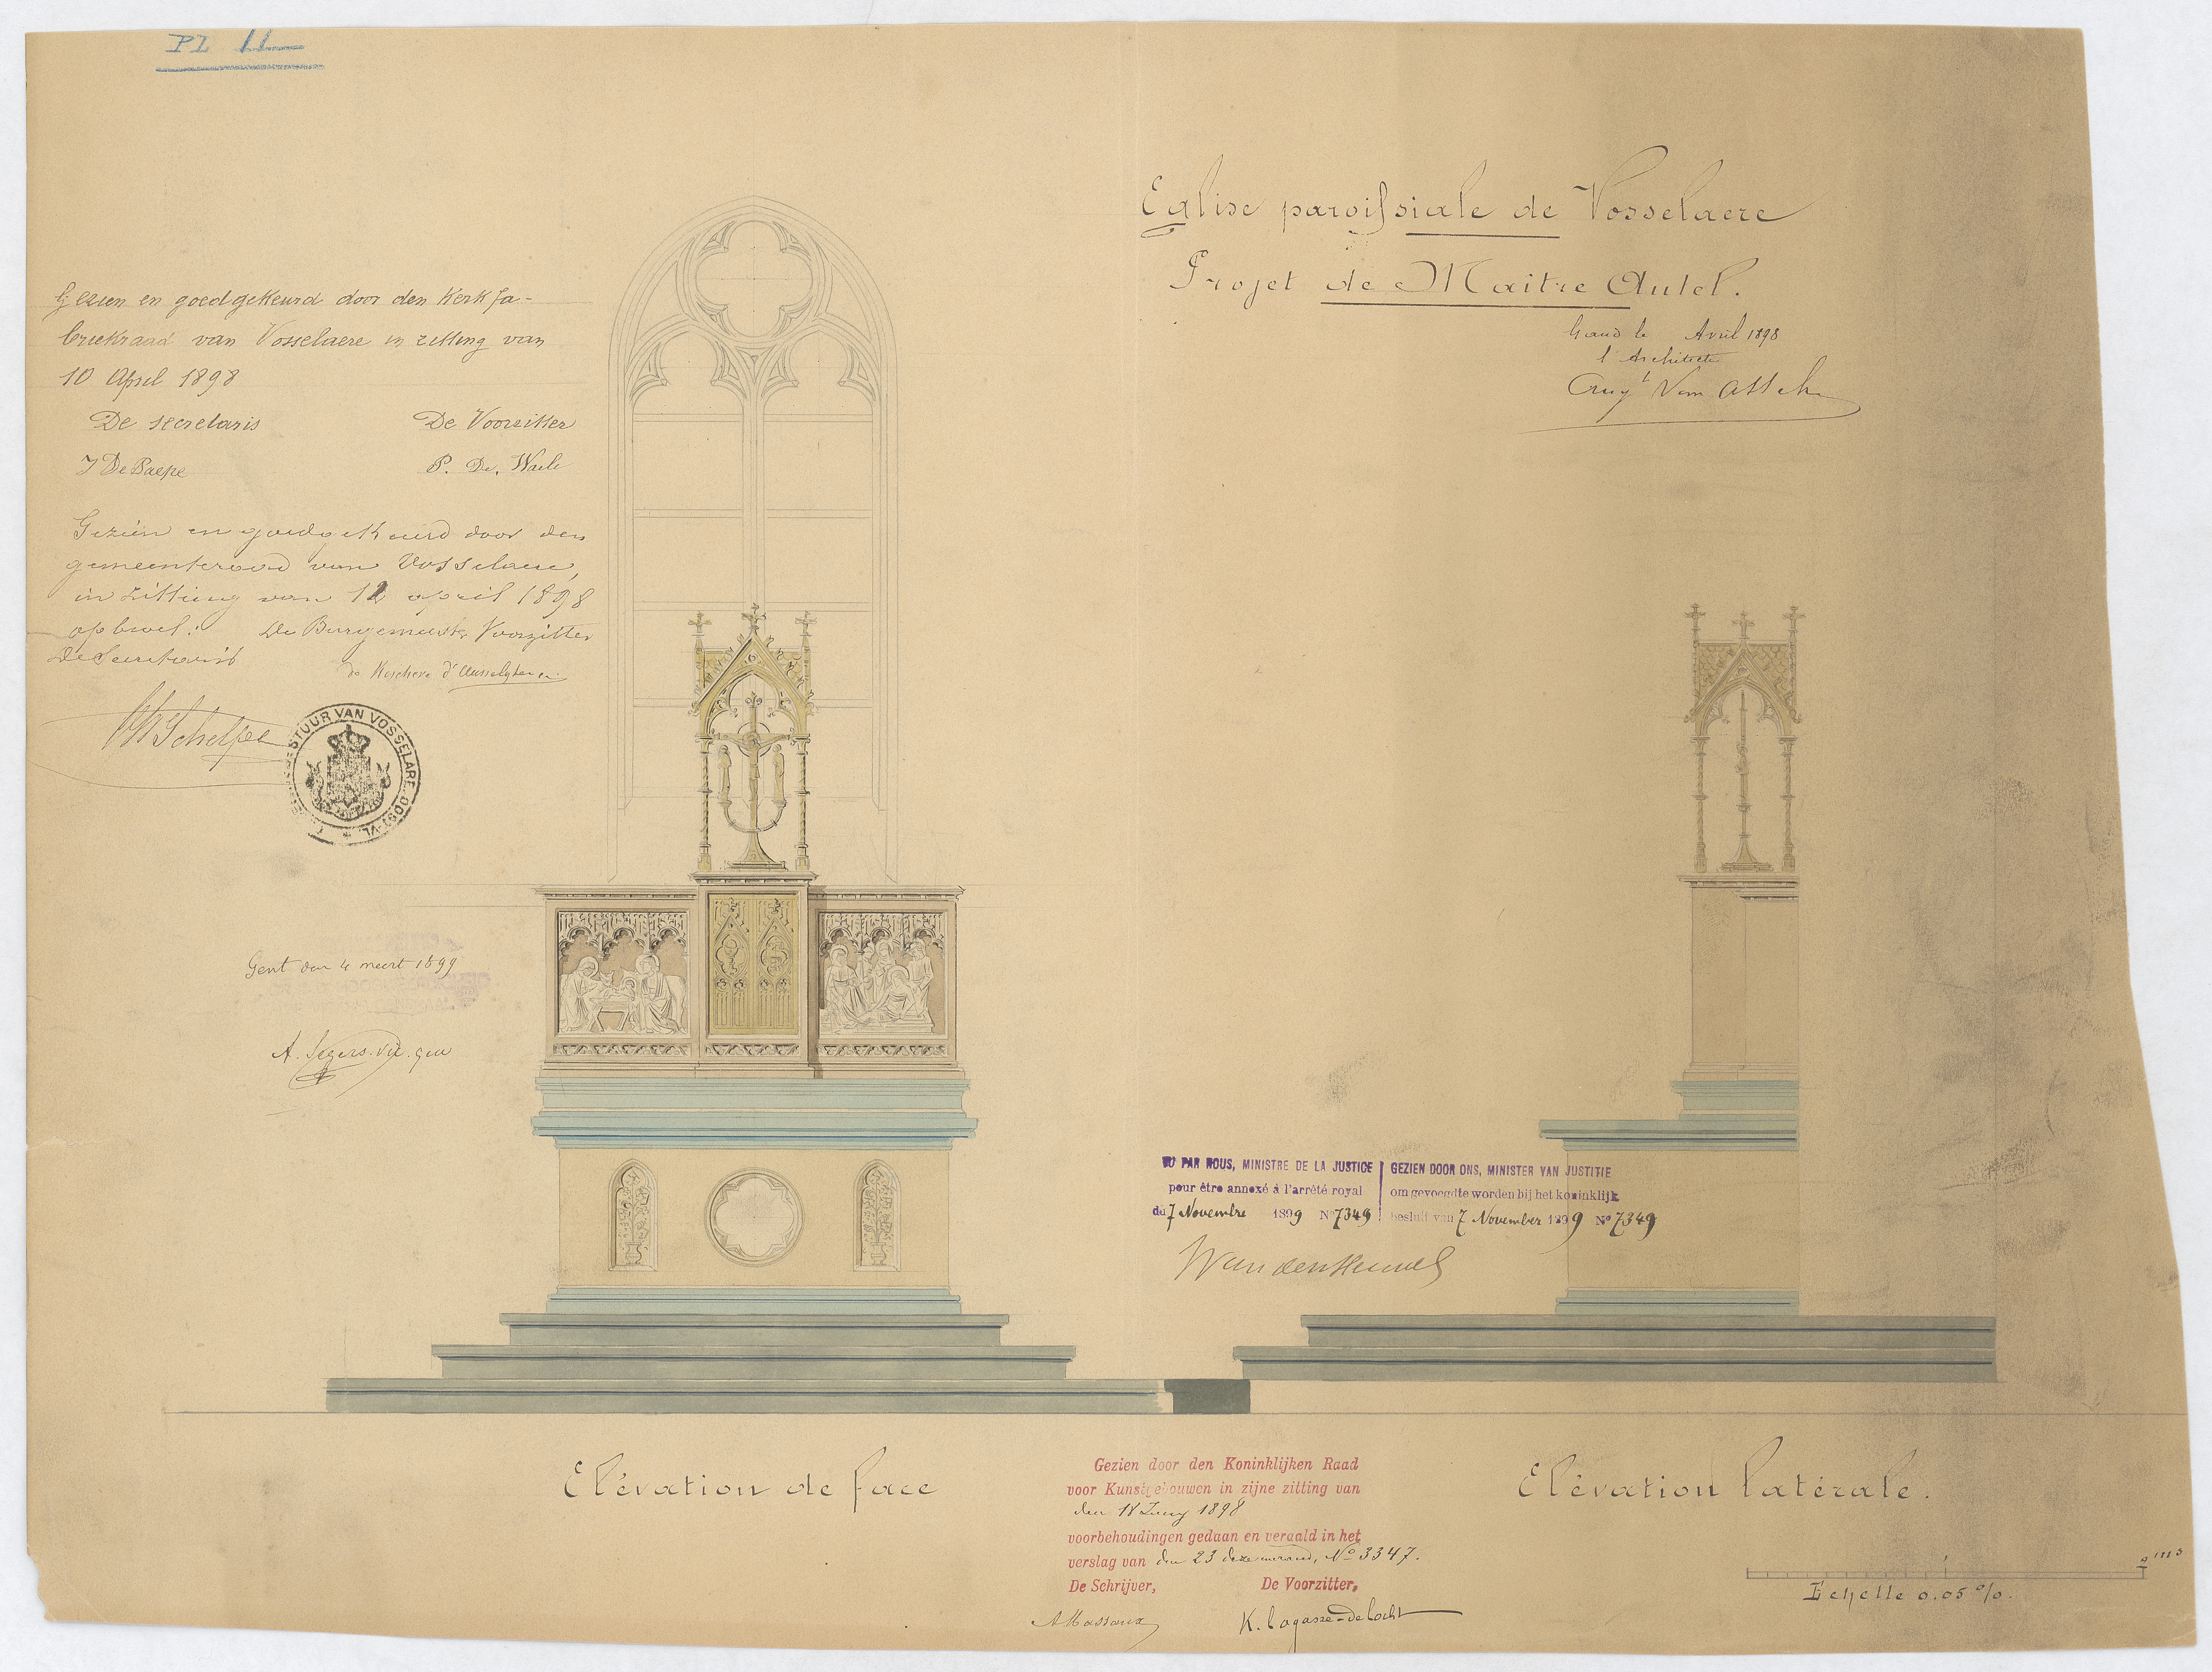 PL 11
Eglise paroissiale de Vosselaere
Projet de Maitre Autel.
Gand le Avril 1898
l'Architecte
Aug.t Van Assche
Gezien en goedgekeurd door den Kerkfa-
briekraad van Vosselaere in zitting van
10 April 1898
De secretaris De Voorzitter
J De Paepe P. De. Waele
Gezien en goedgekeurd door den
gemeenteraad van Vosselaere,
in zitting van 12 april 1898
op bevel: De Burgemeester Voorzitter
De Secretaris
STUUR VAN VOSSELARE (OOST-VL.)
Gent den 4 meert 1899
A. Segers. vic. gen
VU PAR NOUS, MINISTRE DE LA JUSTICE
pour être annexé à l'arrêté royal
du 7 Novembre 1899 No 7349
GEZIEN DOOR ONS, MINISTER VAN JUSTITIE
om gevoegd te worden bij het koninklijk
besluit van 7 November 1899 No 7349
Vandenheuvel
Elévation de face
Elévation latérale.
Gezien door den Koninklijken Raad
voor Kunstgebouwen in zijne zitting van
den 18 Juny 1898
voorbehoudingen gedaan en veraald in het
verslag van den 23 dezer maand, No 3347.
De Schrijver, De Voorzitter,
A Massaux K. Lagasse-de Locht
Echelle 0.05 %.